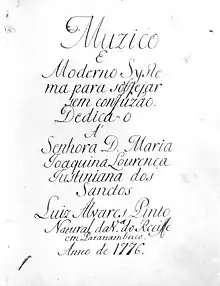 Muzico
E
Moderno Syste
ma para solfejar
sem confuzão.
Dedica-o
A'
Senhora D. Maria
Joaquina Lourença
Justiniana dos
Santos
Luiz Alvares Pinto
Natural da V.ª do Recife
em Paranambuco.
Anno de 1776.